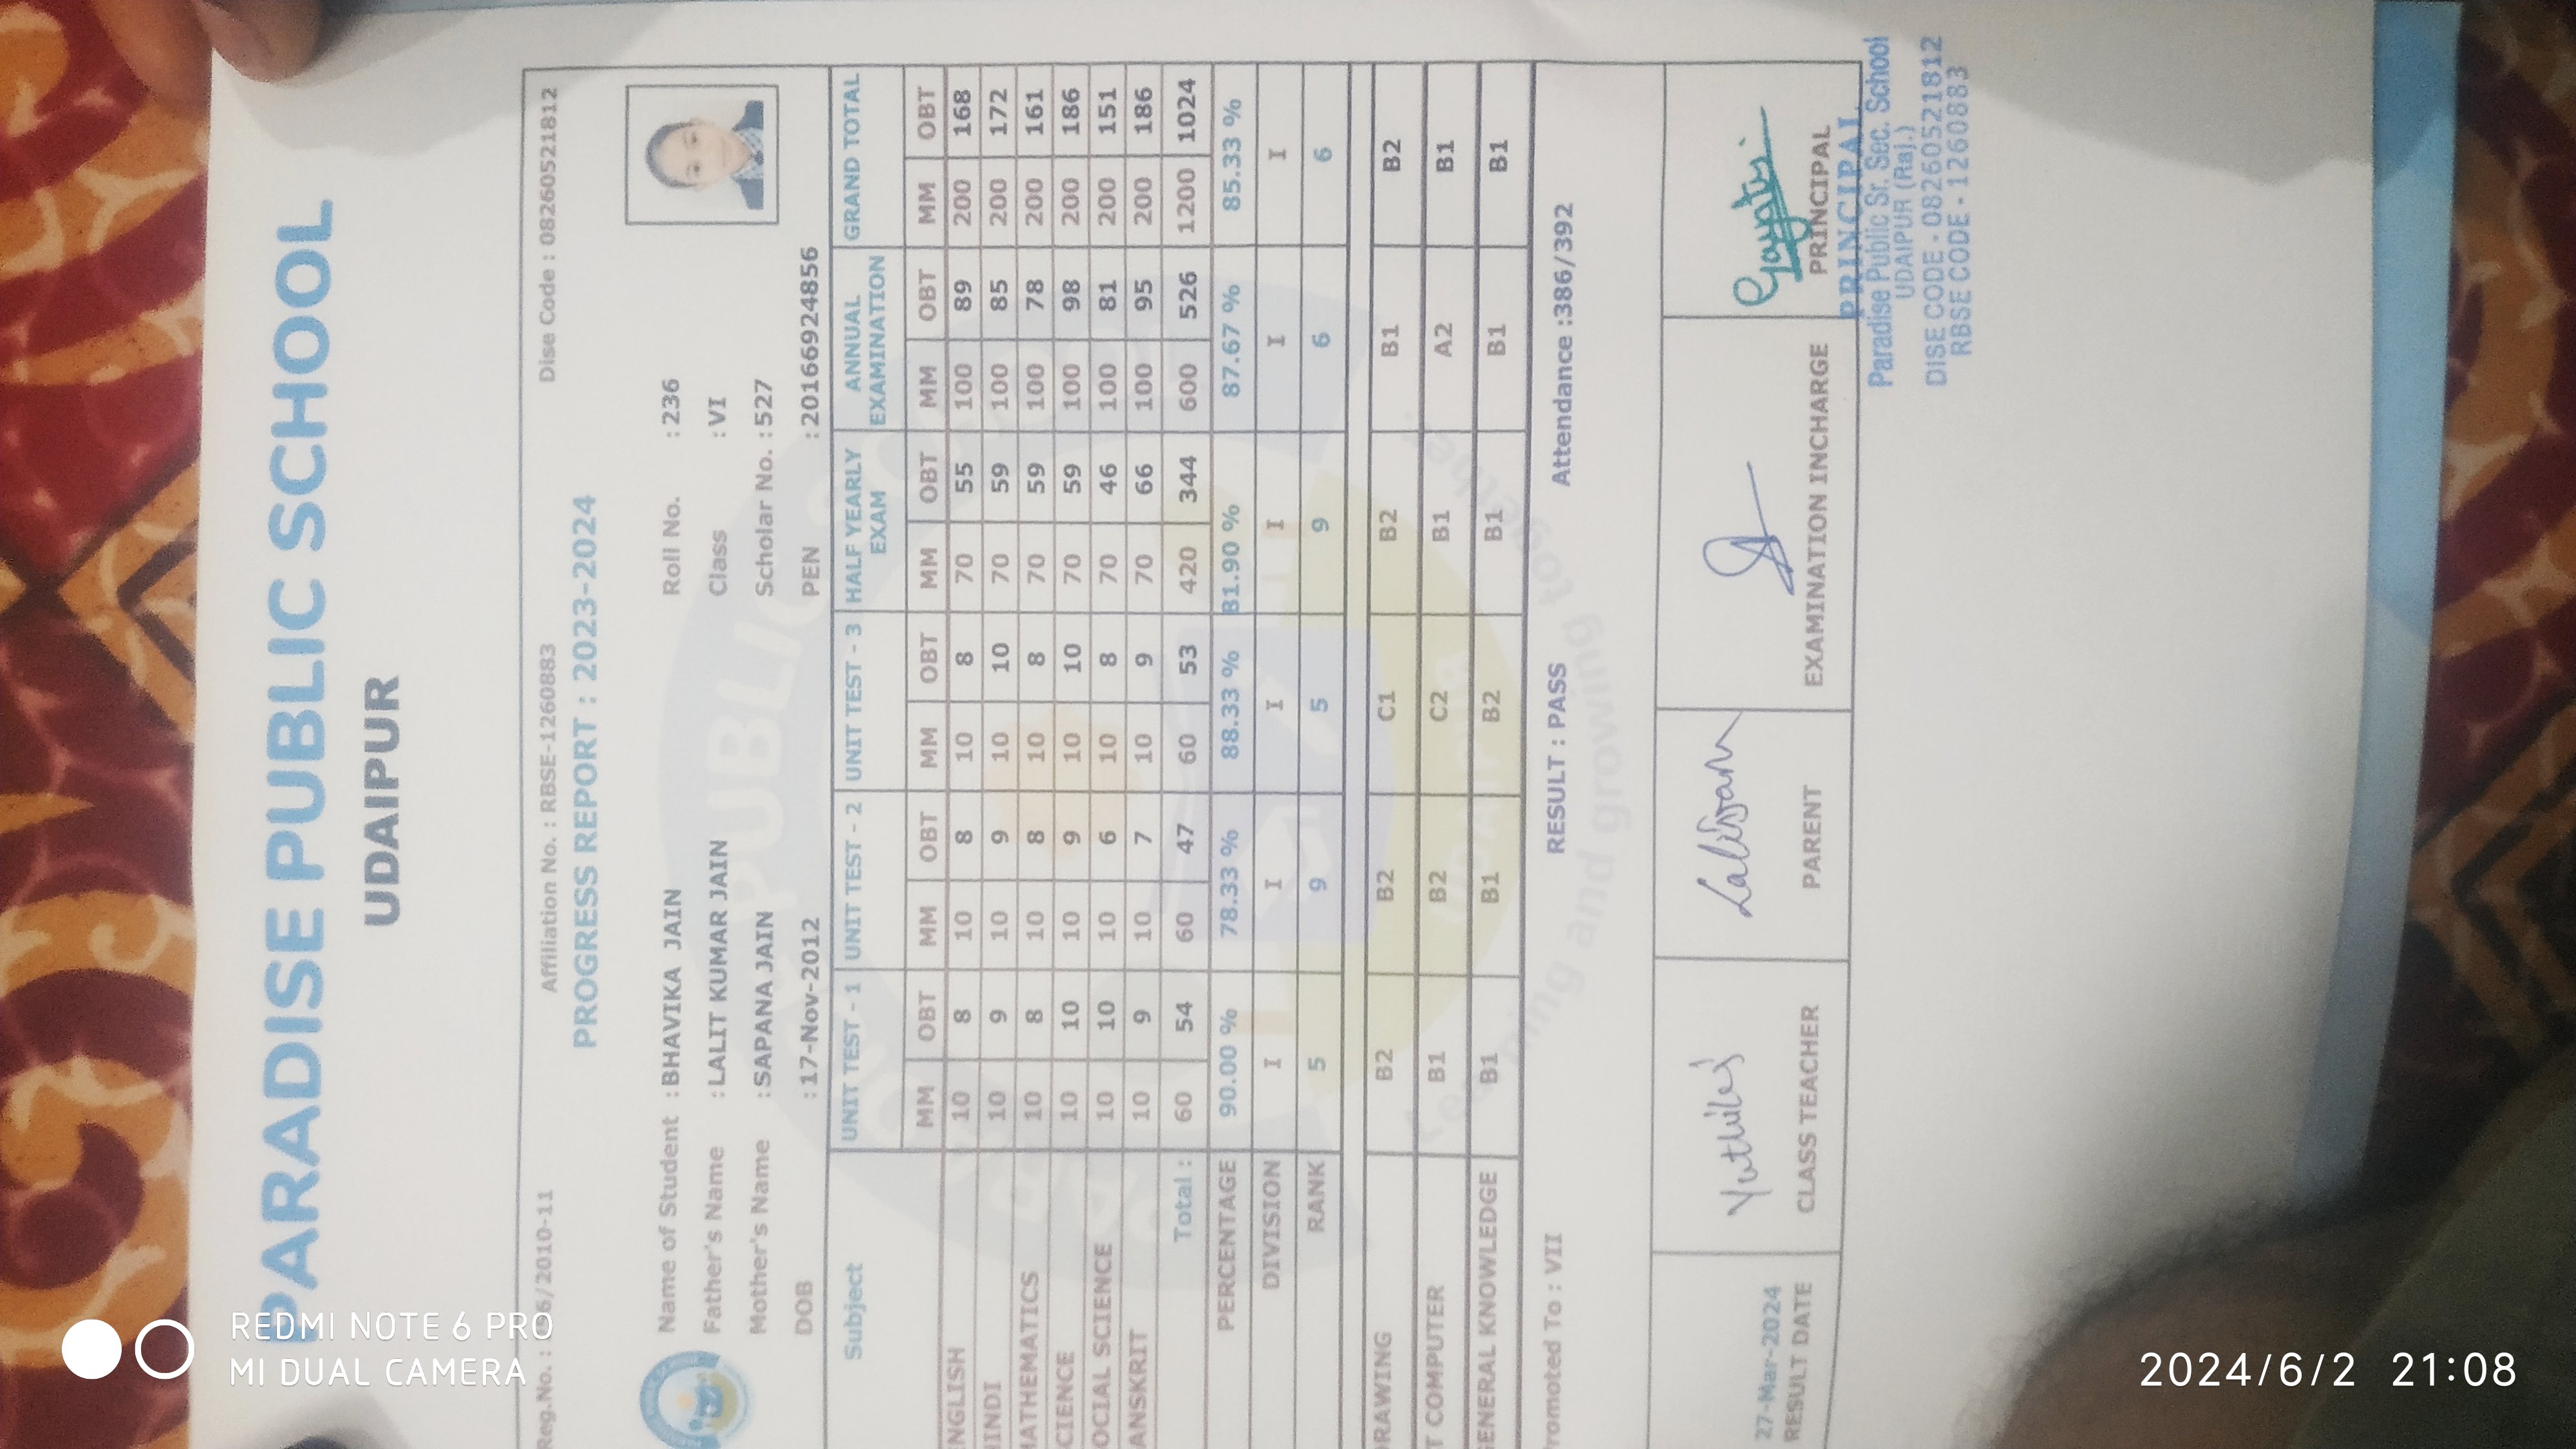 PARADISE PUBLIC SCHOOL
UDAIPUR
Reg.No. : 6/2010-11 Affiliation No. : RBSE-1260883 Dise Code : 08260521812
PROGRESS REPORT : 2023-2024
Name of Student : BHAVIKA JAIN Roll No. : 236
Father's Name : LALIT KUMAR JAIN Class : VI
Mother's Name : SAPANA JAIN Scholar No. : 527
DOB : 17-Nov-2012 PEN : 20166924856
Subject UNIT TEST - 1 UNIT TEST - 2 UNIT TEST - 3 HALF YEARLY EXAM ANNUAL EXAMINATION GRAND TOTAL
MM OBT MM OBT MM OBT MM OBT MM OBT MM OBT
NGLISH 10 8 10 8 10 8 70 55 100 89 200 168
HINDI 10 9 10 9 10 10 70 59 100 85 200 172
MATHEMATICS 10 8 10 8 10 8 70 59 100 78 200 161
CIENCE 10 10 10 9 10 10 70 59 100 98 200 186
OCIAL SCIENCE 10 10 10 6 10 8 70 46 100 81 200 151
ANSKRIT 10 9 10 7 10 9 70 66 100 95 200 186
Total : 60 54 60 47 60 53 420 344 600 526 1200 1024
PERCENTAGE 90.00 % 78.33 % 88.33 % 81.90 % 87.67 % 85.33 %
DIVISION I I I I I I
RANK 5 9 5 9 6 6
DRAWING B2 B2 C1 B2 B1 B2
T COMPUTER B1 B2 C2 B1 A2 B1
GENERAL KNOWLEDGE B1 B1 B2 B1 B1 B1
Promoted To : VII RESULT : PASS Attendance :386/392
27-Mar-2024
RESULT DATE CLASS TEACHER PARENT EXAMINATION INCHARGE PRINCIPAL
PRINCIPAL
Paradise Public Sr. Sec. School
UDAIPUR (Raj.)
DISE CODE - 08260521812
RBSE CODE - 1260883
REDMI NOTE 6 PRO
MI DUAL CAMERA
2024/6/2 21:08